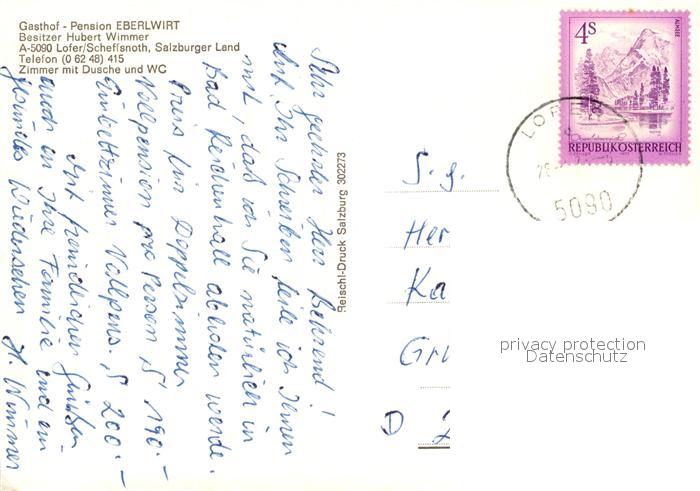 Gasthof - Pension EBERLWIRT
Besitzer Hubert Wimmer
A-5090 Lofer/Scheffsnoth, Salzburger Land
Telefon (0 62 48) 415
Zimmer mit Dusche und WC
Sehr geehrter Herr Behrend!
Auf Ihr Schreiben teile ich Ihnen
mit, daß ich Sie natürlich in
Bad Reichenhall abholen werde.
Preis für Doppelzimmer
Vollpension pro Person S 190.-
Einbettzimmer Vollpens. S 200.-
Mit freundlichen Grüßen
auch an Ihre Familie und ein
gesundes Wiedersehen H. Wimmer
Reischl-Druck Salzburg 302273
4S
ALMSEE
REPUBLIK ÖSTERREICH
LOF
5090
S. g.
Her
Ka
Gru
D 2
privacy protection
Datenschutz